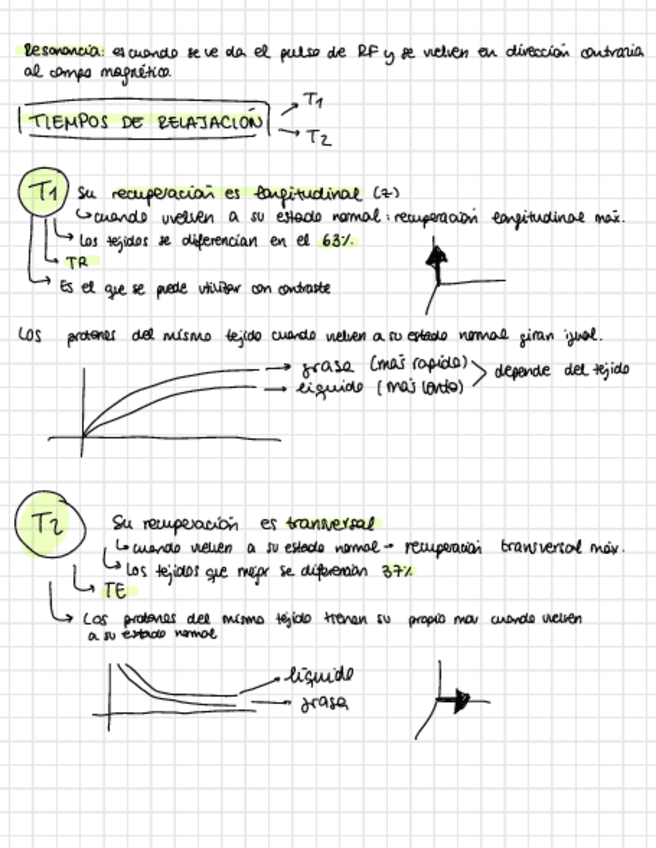 Resonancia: es cuando se ve da el pulso de RF y se vuelven en dirección contraria
al campo magnético.
TIEMPOS DE RELAJACIÓN
T1
T2
T1 Su recuperación es longitudinal (z)
cuando vuelven a su estado normal: recuperación longitudinal máx.
Los tejidos se diferencian en el 63%
TR
Es el que se puede utilizar con contraste
Los protones del mismo tejido cuando vuelven a su estado normal giran igual.
grasa (más rapido)
liquido (más lento)
depende del tejido
T2 Su recuperación es tranversal
cuando vuelven a su estado normal → recuperación transversal máx.
Los tejidos que mejor se diferencian 37%
TE
Los protones del mismo tejido tienen su propio mov cuando vuelven
a su estado normal
liquido
grasa